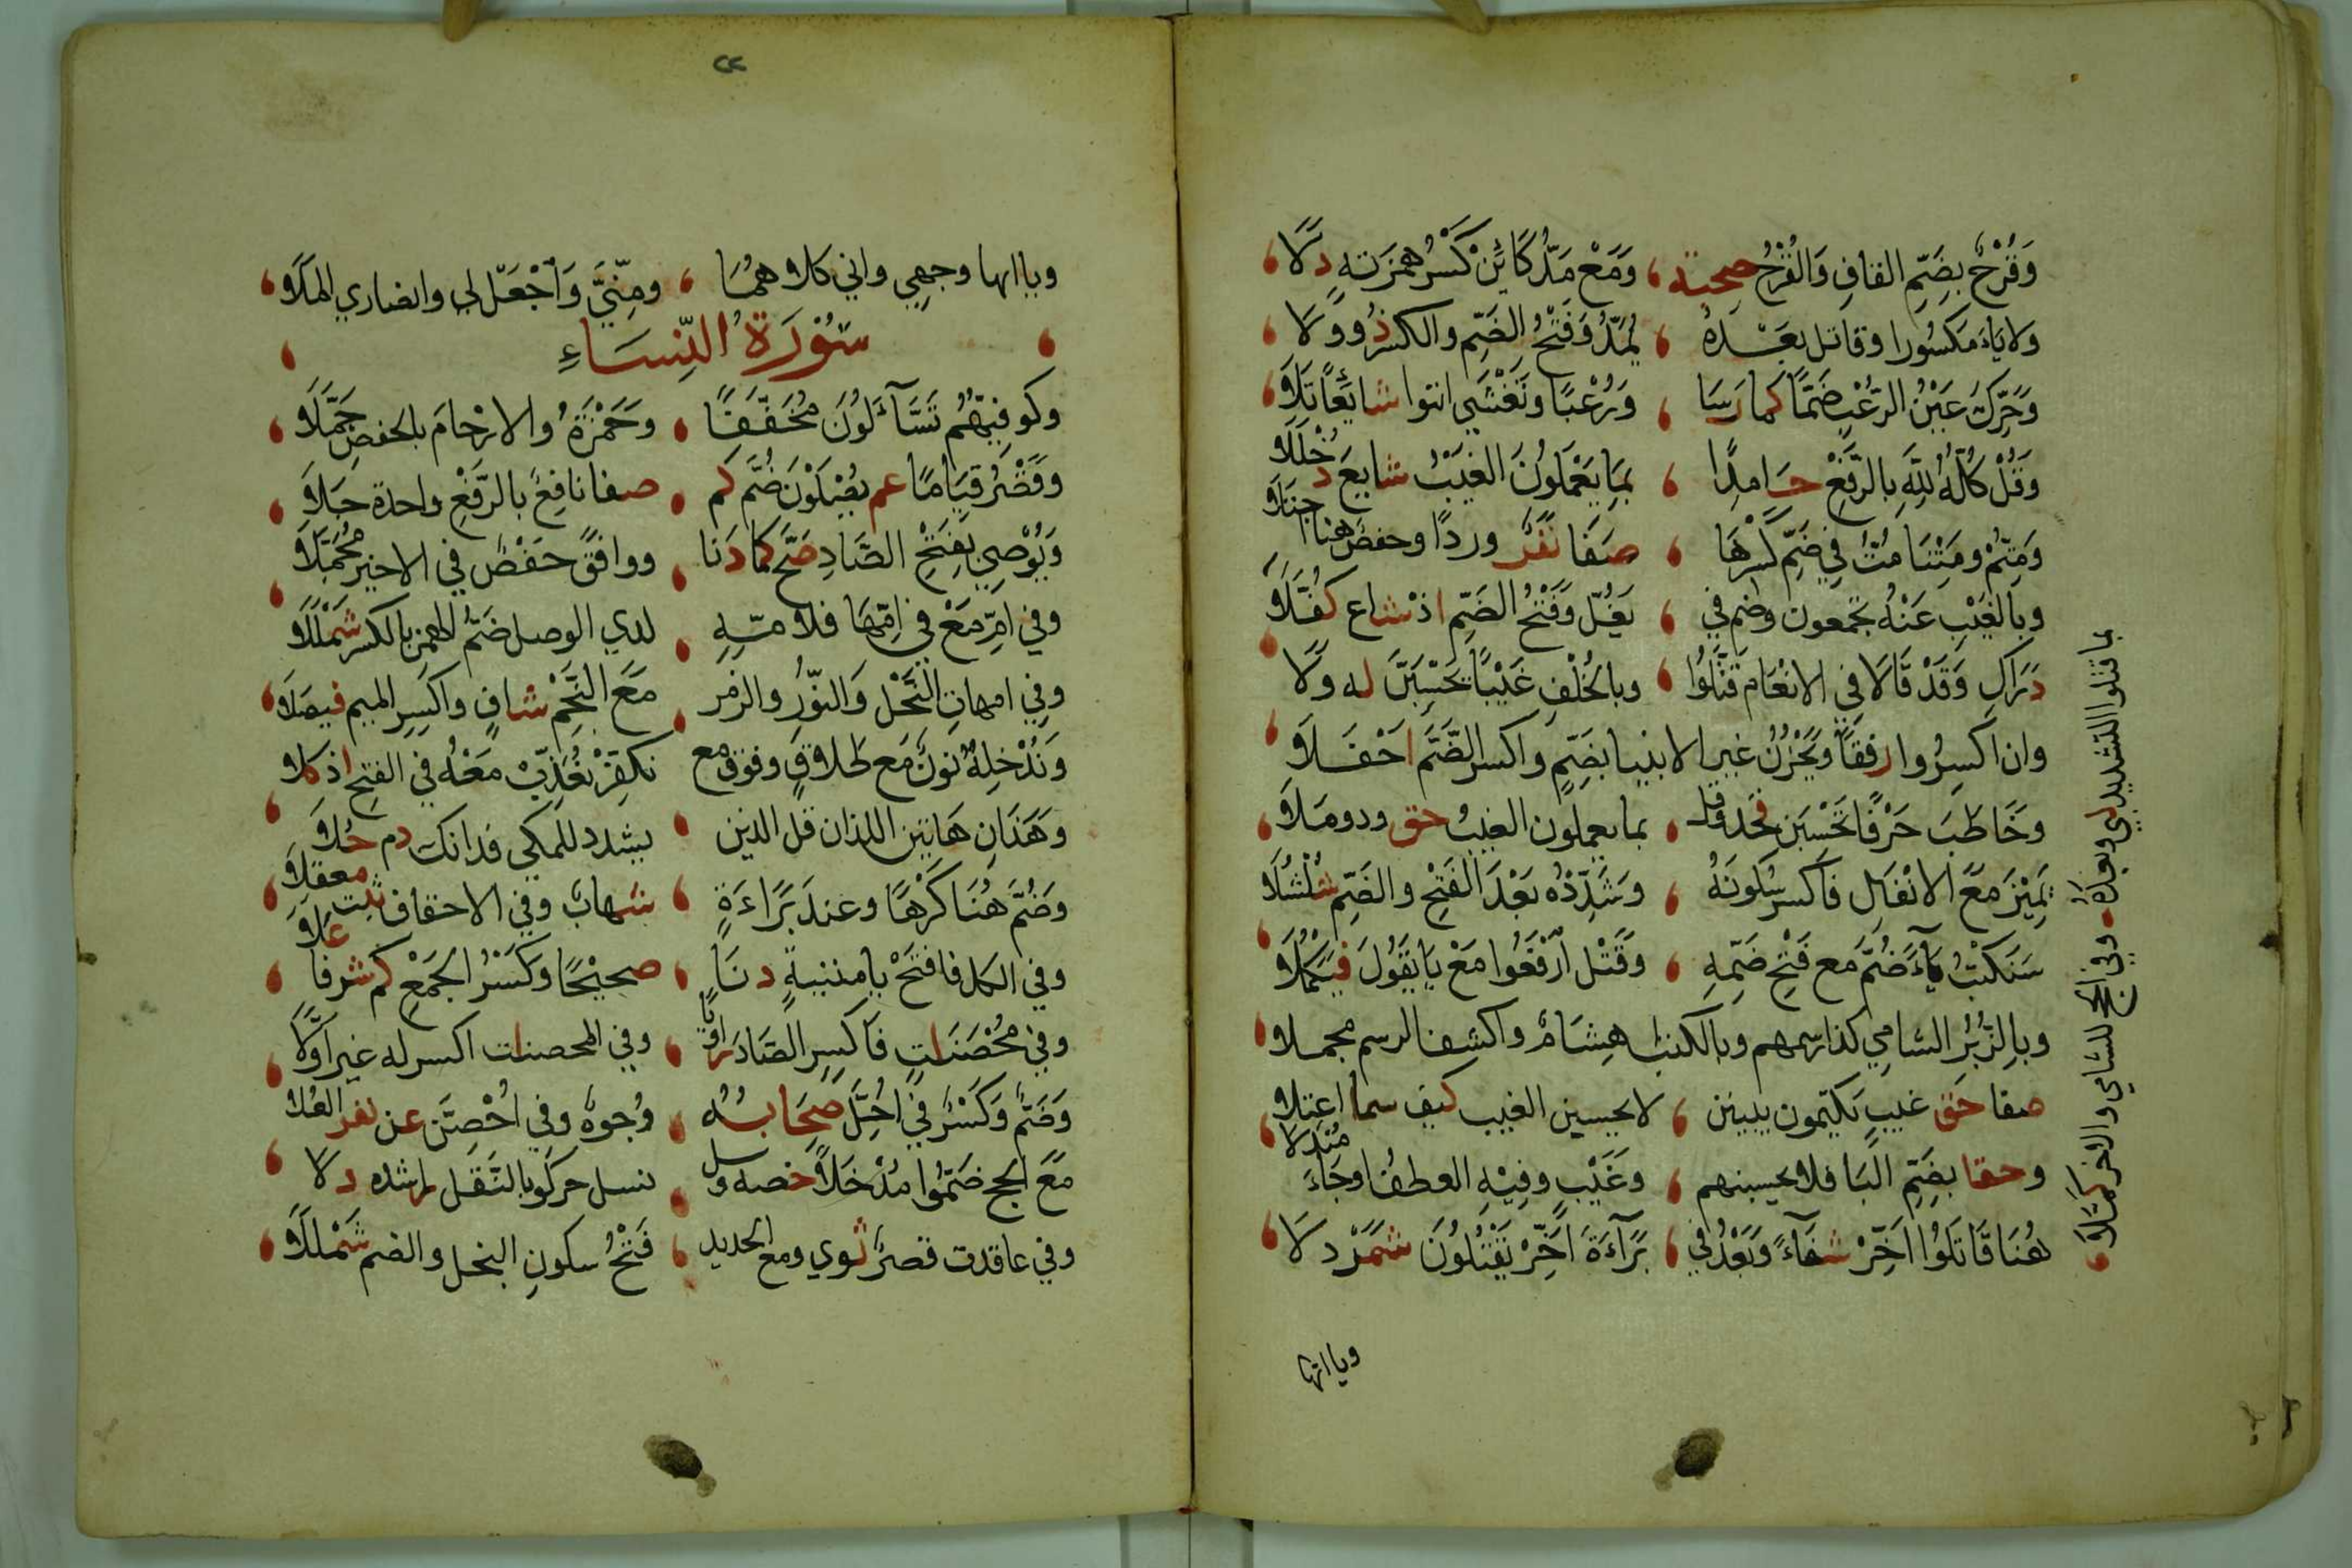 وَقُرْحٌ بِضَمِّ القافِ وَالقُرْحُ صحبته وَمَعْ مَدِّ كَائِنْ كَسْرُ همزته دلا
ولا ياء مكسورا وقاتل بعده يُمَدُّ وَفَتْحُ الضَّمِّ والكسر ذو ولا
وَحُرِّكَ عَيْنُ الرُّعْبِ ضَمًّا كما رسا وَرُعْبًا وتَغْشَى انثوا شايعًا تلا
وَقُلْ كُلُّهُ لِلَّهِ بِالرَّفْعِ حامدا بِمَا يَعْمَلُونَ الغَيْبُ شايع دخللا
وَمِتُّمْ ومِتْنَا مُتُّ فِي ضَمِّ كَسْرِهَا صفا نفر وردًا وحفص هنا اجتلا
وبِالْغَيْبِ عَنْهُ تجمعون وضم في يَغُلّ وَفَتْحُ الضَّمِّ اذ شاع كفلا
دراكِ وَقَدْ قَالَا فِي الانْعَام قَتَّلُوا وبالخُلْفِ غَيْبًا يَحْسِبَنَّ له ولا
وان اكسروا رفقًا وَيَحْزُنُ غير الانبيا بضم واكسر الضَّمَّ احفلا
وخَاطَبَ حَرْفًا تَحْسِبَن فخذ وقل بما يعملون الغيب حق وذو ملا
يَمِيْزَ مَعَ الانْفَالِ فاكسر سكونه وَشَدِّدْهُ بَعْدَ الْفَتْحِ والضَّمِّ شلشلا
سَنَكْتُبُ يَاءٌ ضُمَّ مع فَتْحِ ضَمِّهِ وَقَتْلَ ارْفَعُوا مَعْ يَا يَقُولَ فيكملا
وبِالزُّبُرِ الشامي كذا رسمهم وبالكتاب هِشَامٌ واكشف الرسم مجملا
صفا حق غيب يكتمون يبينن لا يحسبن الغيب كيف سما اعتلا
وحقا بضَمِّ البَا فلا يحسبنهم وَغَيْبٍ وفِيْهِ العطف او جاء مبدلا
هُنَا قَاتَلُوا اَخِّرْ شفاء وَبَعْدُ فِي بَرَاءَةَ اَخِّرْ يَقْتُلُونَ شمردلا
بما قتلوا التشديد لبى وبعده وفي الحج للشامي والاخر كملا
وياانها
٢٢
وياانها وجهي واني كلاهما ومِنِّيَ وَاجْعَل لي وانصاري الملا
سُوْرَةُ النِّسَاءِ
وكوفِيُّهُم تَسَّاءَلُونَ مُخَفَّفًا وَحَمْزَةُ والارْحَامَ بالخفض جملا
وَقَصْرُ قِيَامًا عم يصْلَوْنَ ضُمَّ كم صفا نافع بالرَّفْعِ واحدة جلا
وَيُوْصِي بِفَتْحِ الصَّادِ صَحَّ كما دَنا ووافق حَفْصٌ في الاخير مُجَمَّلَا
وفي امِّ مَعْ في امِّهَا فلامِّهِ لدى الوصل ضَمُّ الهمز بالكسر شمللا
وفي امهاتِ النَّحْل وَالنُّوْرِ والزمر مَعَ النَّجْمِ شافٍ واكسرِ الميم فيصلا
وَنُدْخِلْهُ نونٌ مَع طَلاقٍ وفوق مع نكفِّرْ نُعَذِّبْ مَعْهُ في الفتح اذ كلا
وهَذَانِ هَاتَيْنِ اللذان قل الذين يشدد للمكي فذانك دم حلا
وَضُمَّ هُنَا كَرْهًا وعند بَرَاءَةٍ شهاب وفي الاحقاف ثبت معقلا
وفي الكل فافتَحْ يا مبينةٍ دنا صحيحًا وَكَسْرُ الجَمْعِ كم شرفا علا
وفي مُحْصَنَاتٍ فاكسِرِ الصَّاد راويًا وفي المحصنات اكسر له غير أَوَّلا
وَضَمٌّ وَكَسْرٌ فِي اُحِلَّ صحابه وُجوه وفي اُحْصِنَّ عن نفر العلا
مَعَ الحج ضَمُّوا مُدْخَلًا خصه وسل فسل حركوا بالنقل راشده دلا
وفي عاقدت قصرٌ ثوى ومع الحديد فَتْحُ سكونِ البخل والضم شمللا